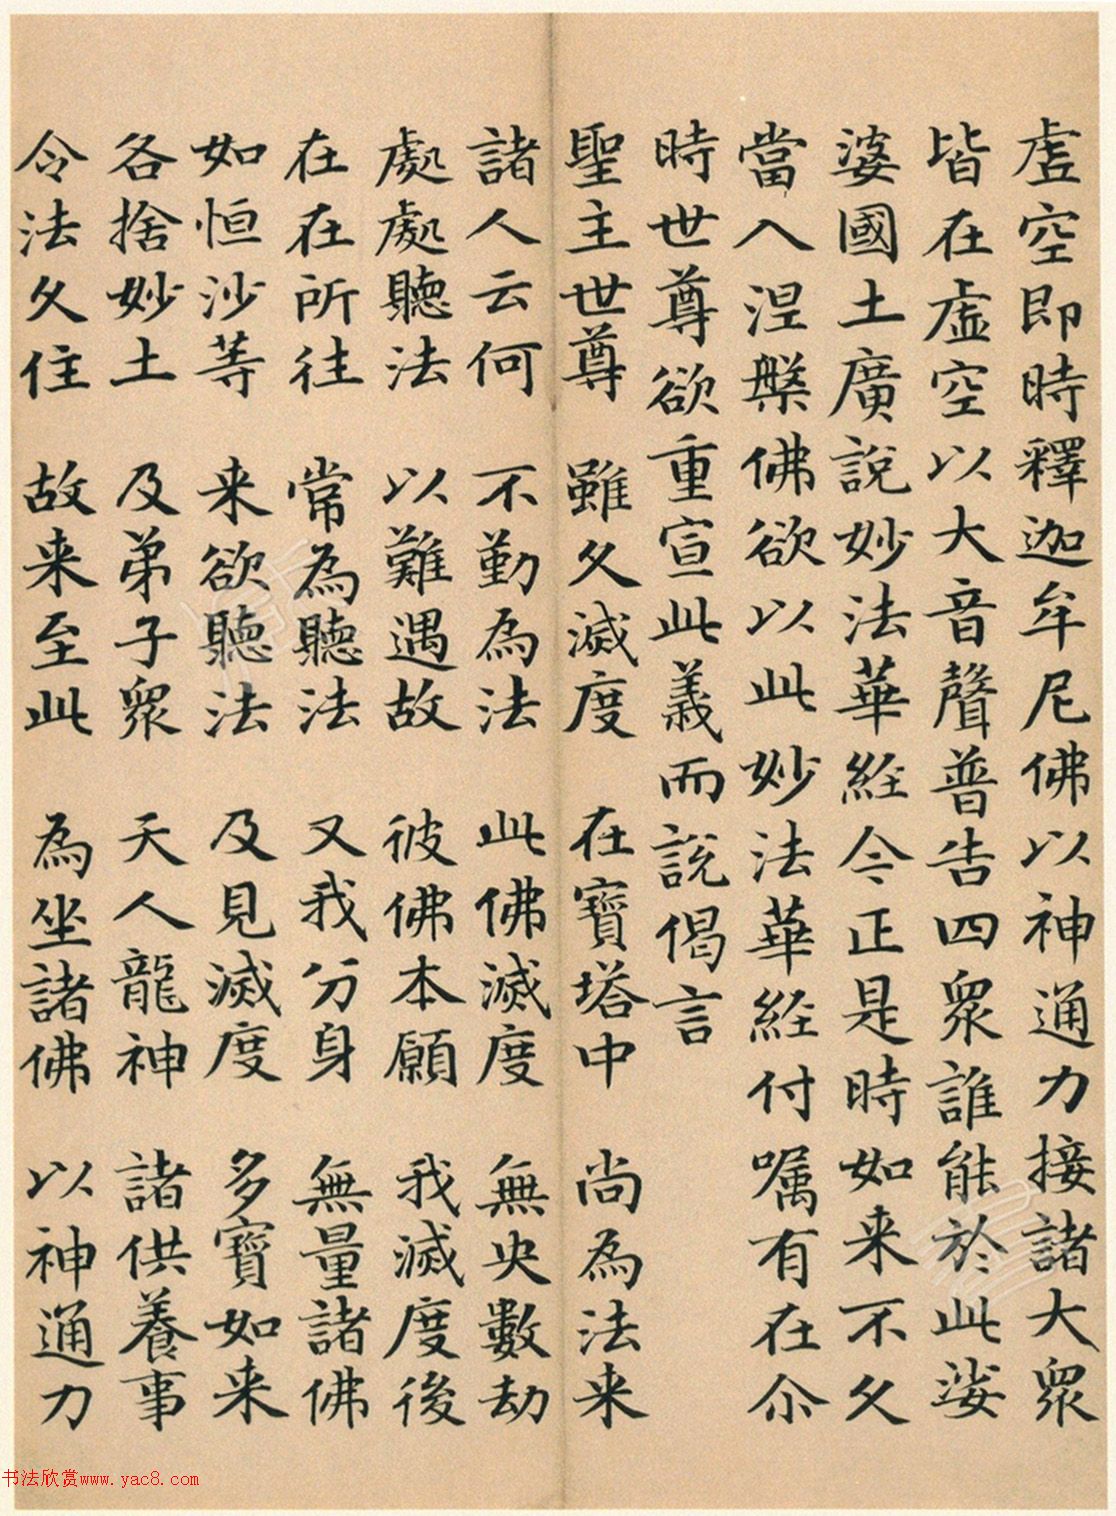 虛空即時釋迦牟尼佛以神通力接諸大眾
皆在虛空以大音聲普告四眾誰能於此娑
婆國土廣說妙法華經今正是時如来不久
當入涅槃佛欲以此妙法華經付嘱有在尒
時世尊欲重宣此義而說偈言
聖主世尊 雖久滅度 在寶塔中 尚為法来
諸人云何 不勤為法 此佛滅度 無央數劫
處處聽法 以難遇故 彼佛本願 我滅度後
在在所往 常為聽法 又我分身 無量諸佛
如恒沙等 来欲聽法 及見滅度 多寶如来
各捨妙土 及弟子眾 天人龍神 諸供養事
令法久住 故来至此 為坐諸佛 以神通力
书法欣赏www.yac8.com